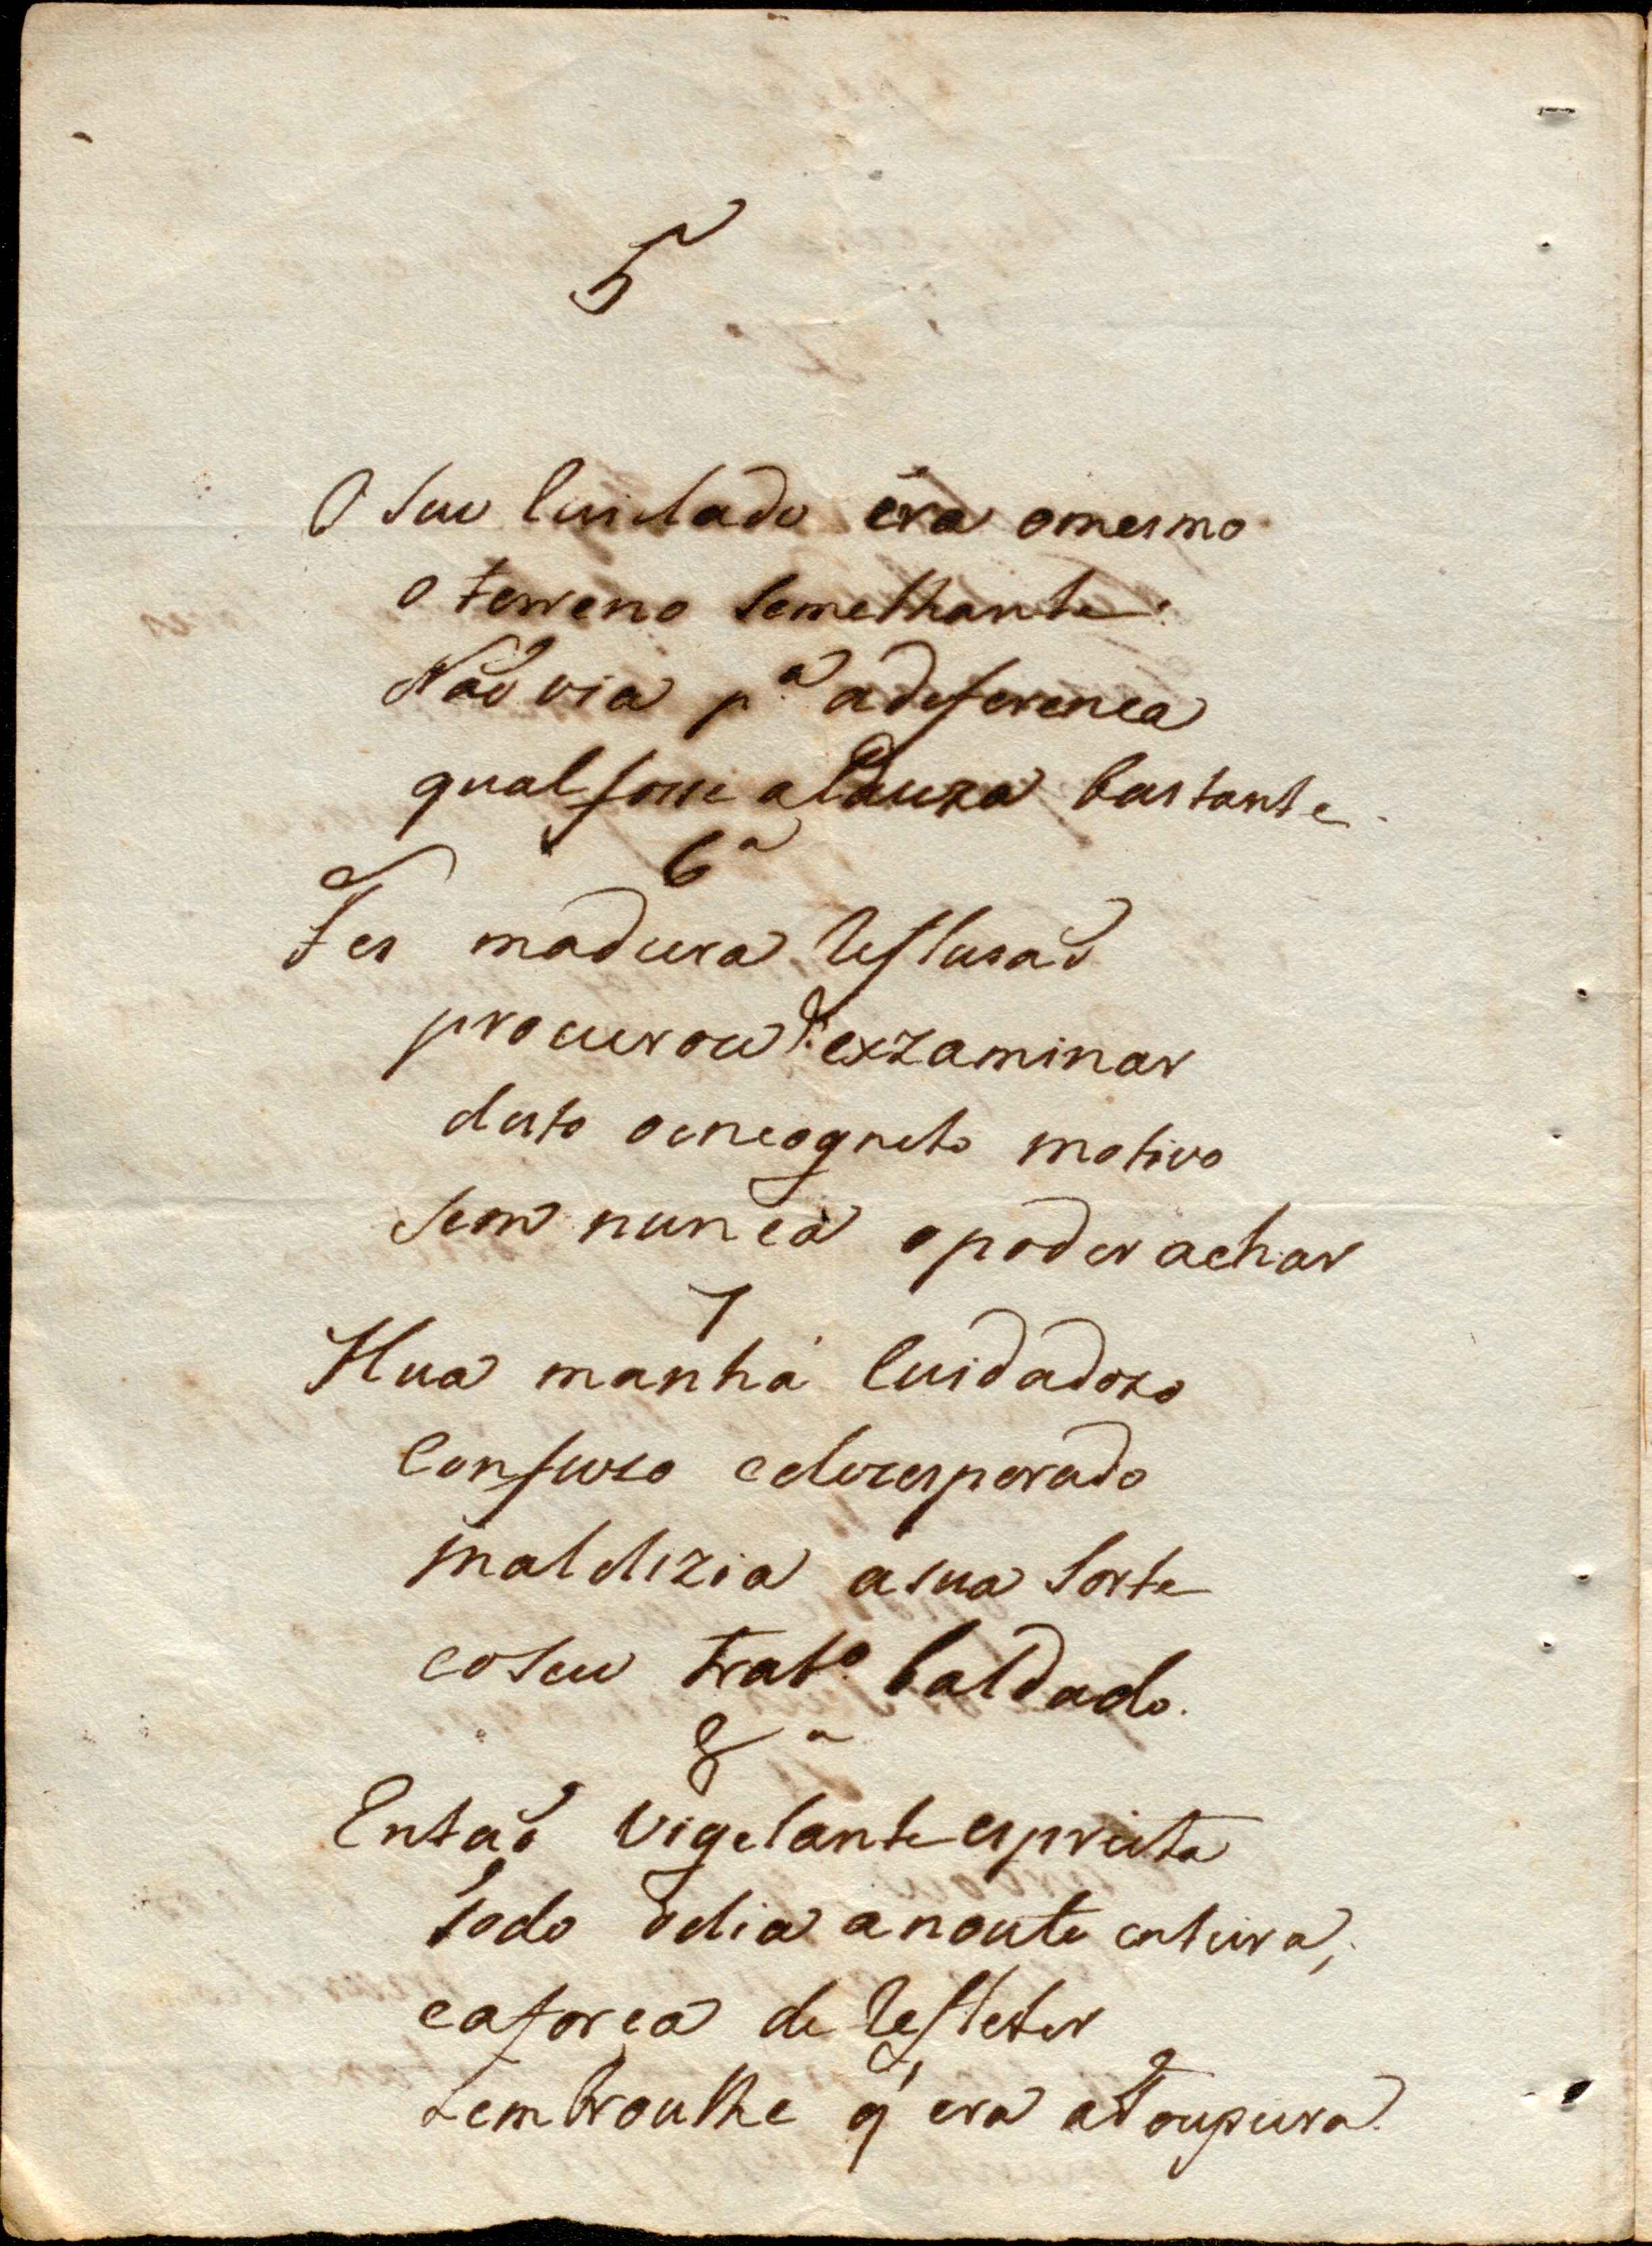 5
O seu Cuidado éra omesmo
o terreno semelhante.
Naõ via p.ª adeferenca
qual fosse aCauza bastante.
6ª
Fes madura Reflusaõ
procurou exzaminar
desto oencogneto motivo
sem nunca opoder achar
7
Hua manhá Cuidadozo
Confuzo edezesperado
maldizia asua sorte
eoseu trabº baldado.
8ª
Entaõ vigelante espreita
todo odia anoute enteira,
eaforca de Refleter
Lembroulhe q' era aToupeira.